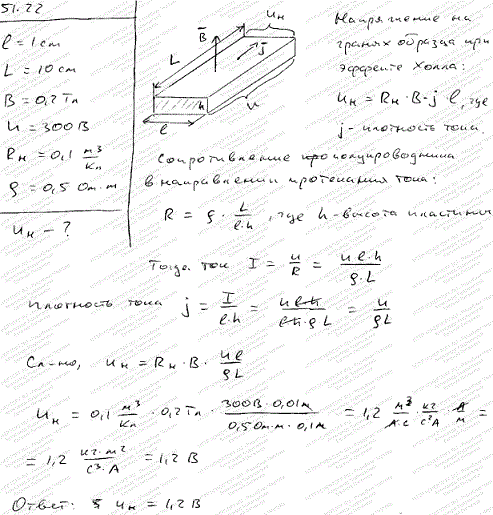 51.22
l = 1 cm
L = 10 cm
B = 0,2 Тл
U = 300 В
R_H = 0,1 м³/Кл
ρ = 0,5 Ом·м
U_H - ?
U_H
B
j
L
h
U
l
Напряжение на
гранях образца при
эффекте Холла:
U_H = R_H · B · j l, где
j - плотность тока.
Сопротивление полупроводника
в направлении протекания тока:
R = ρ · L/(l·h), где h - высота пластины
Тогда ток I = U/R = U l·h/(ρ·L)
Плотность тока j = I/(l·h) = U l h/(l h ρ L) = U/(ρL)
Сл-но, U_H = R_H · B · U l/(ρL)
U_H = 0,1 м³/Кл · 0,2 Тл · 300 В · 0,01 м/(0,5 Ом·м · 0,1 м) = 1,2 м³/(А·с) · кг/(с²А) · А/м =
= 1,2 кг·м²/(с³·А) = 1,2 В
Ответ: U_H = 1,2 В